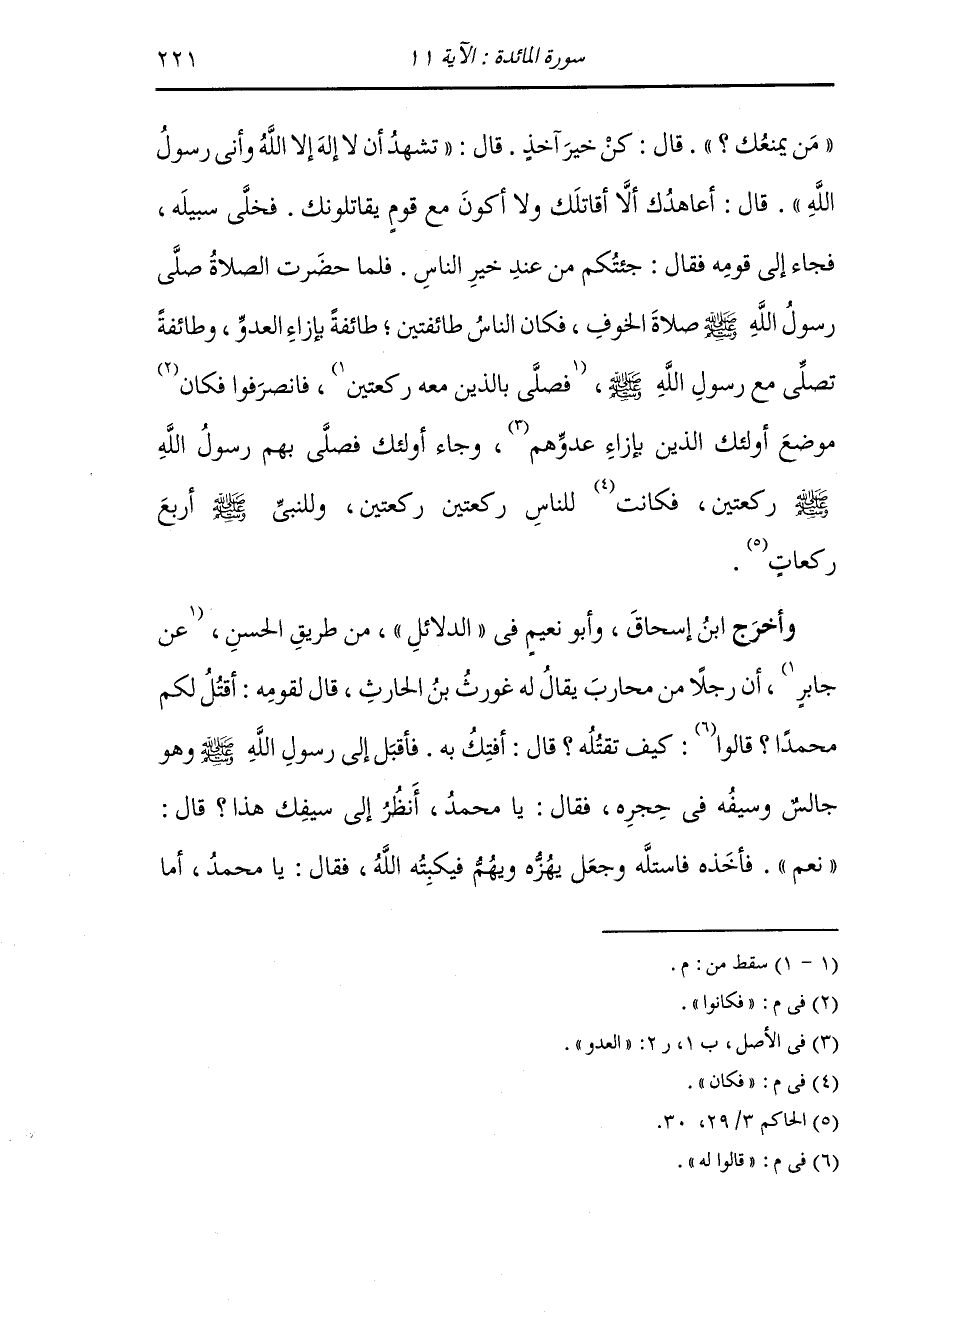 سورة المائدة : الآية ١١ ٢٢١
« مَن يمنعُك ؟ » . قال : كنْ خيرَ آخذٍ . قال : « تشهدُ أن لا إلهَ إلا اللَّهُ وأنى رسولُ
اللَّهِ » . قال : أعاهدُك ألَّا أقاتلَك ولا أكونَ مع قومٍ يقاتلونك . فخلَّى سبيلَه ،
فجاء إلى قومِه فقال : جئتُكم من عندِ خيرِ الناسِ . فلما حضَرت الصلاةُ صلَّى
رسولُ اللَّهِ ﷺ صلاةَ الخوفِ ، فكان الناسُ طائفتين ؛ طائفةً بإزاءِ العدوِّ ، وطائفةً
تصلِّى مع رسولِ اللَّهِ ﷺ ، (١ فصلَّى بالذين معه ركعتين ١) ، فانصرَفوا فكان (٢)
موضعَ أولئك الذين بإزاءِ عدوِّهم (٣) ، وجاء أولئك فصلَّى بهم رسولُ اللَّهِ
ﷺ ركعتين ، فكانت (٤) للناسِ ركعتين ركعتين ، وللنبىِّ ﷺ أربعَ
ركعاتٍ (٥) .
وأخرَج ابنُ إسحاقَ ، وأبو نعيمٍ فى « الدلائلِ » ، من طريقِ الحسنِ ، (١ عن
جابرٍ ١) ، أن رجلًا من محاربَ يقالُ له غورثُ بنُ الحارثِ ، قال لقومِه : أقتُلُ لكم
محمدًا ؟ قالوا (٦) : كيف تقتُلُه ؟ قال : أفتِكُ به . فأقبَل إلى رسولِ اللَّهِ ﷺ وهو
جالسٌ وسيفُه فى حِجرِه ، فقال : يا محمدُ ، أَنظُرُ إلى سيفِك هذا ؟ قال :
« نعم » . فأخَذه فاستلَّه وجعَل يهُزُّه ويهُمُّ فيكبِتُه اللَّهُ ، فقال : يا محمدُ ، أما
(١ - ١) سقط من : م .
(٢) فى م : « فكانوا » .
(٣) فى الأصل ، ب ١، ر ٢: « العدو » .
(٤) فى م : « فكان » .
(٥) الحاكم ٣/ ٢٩، ٣٠.
(٦) فى م : « قالوا له » .